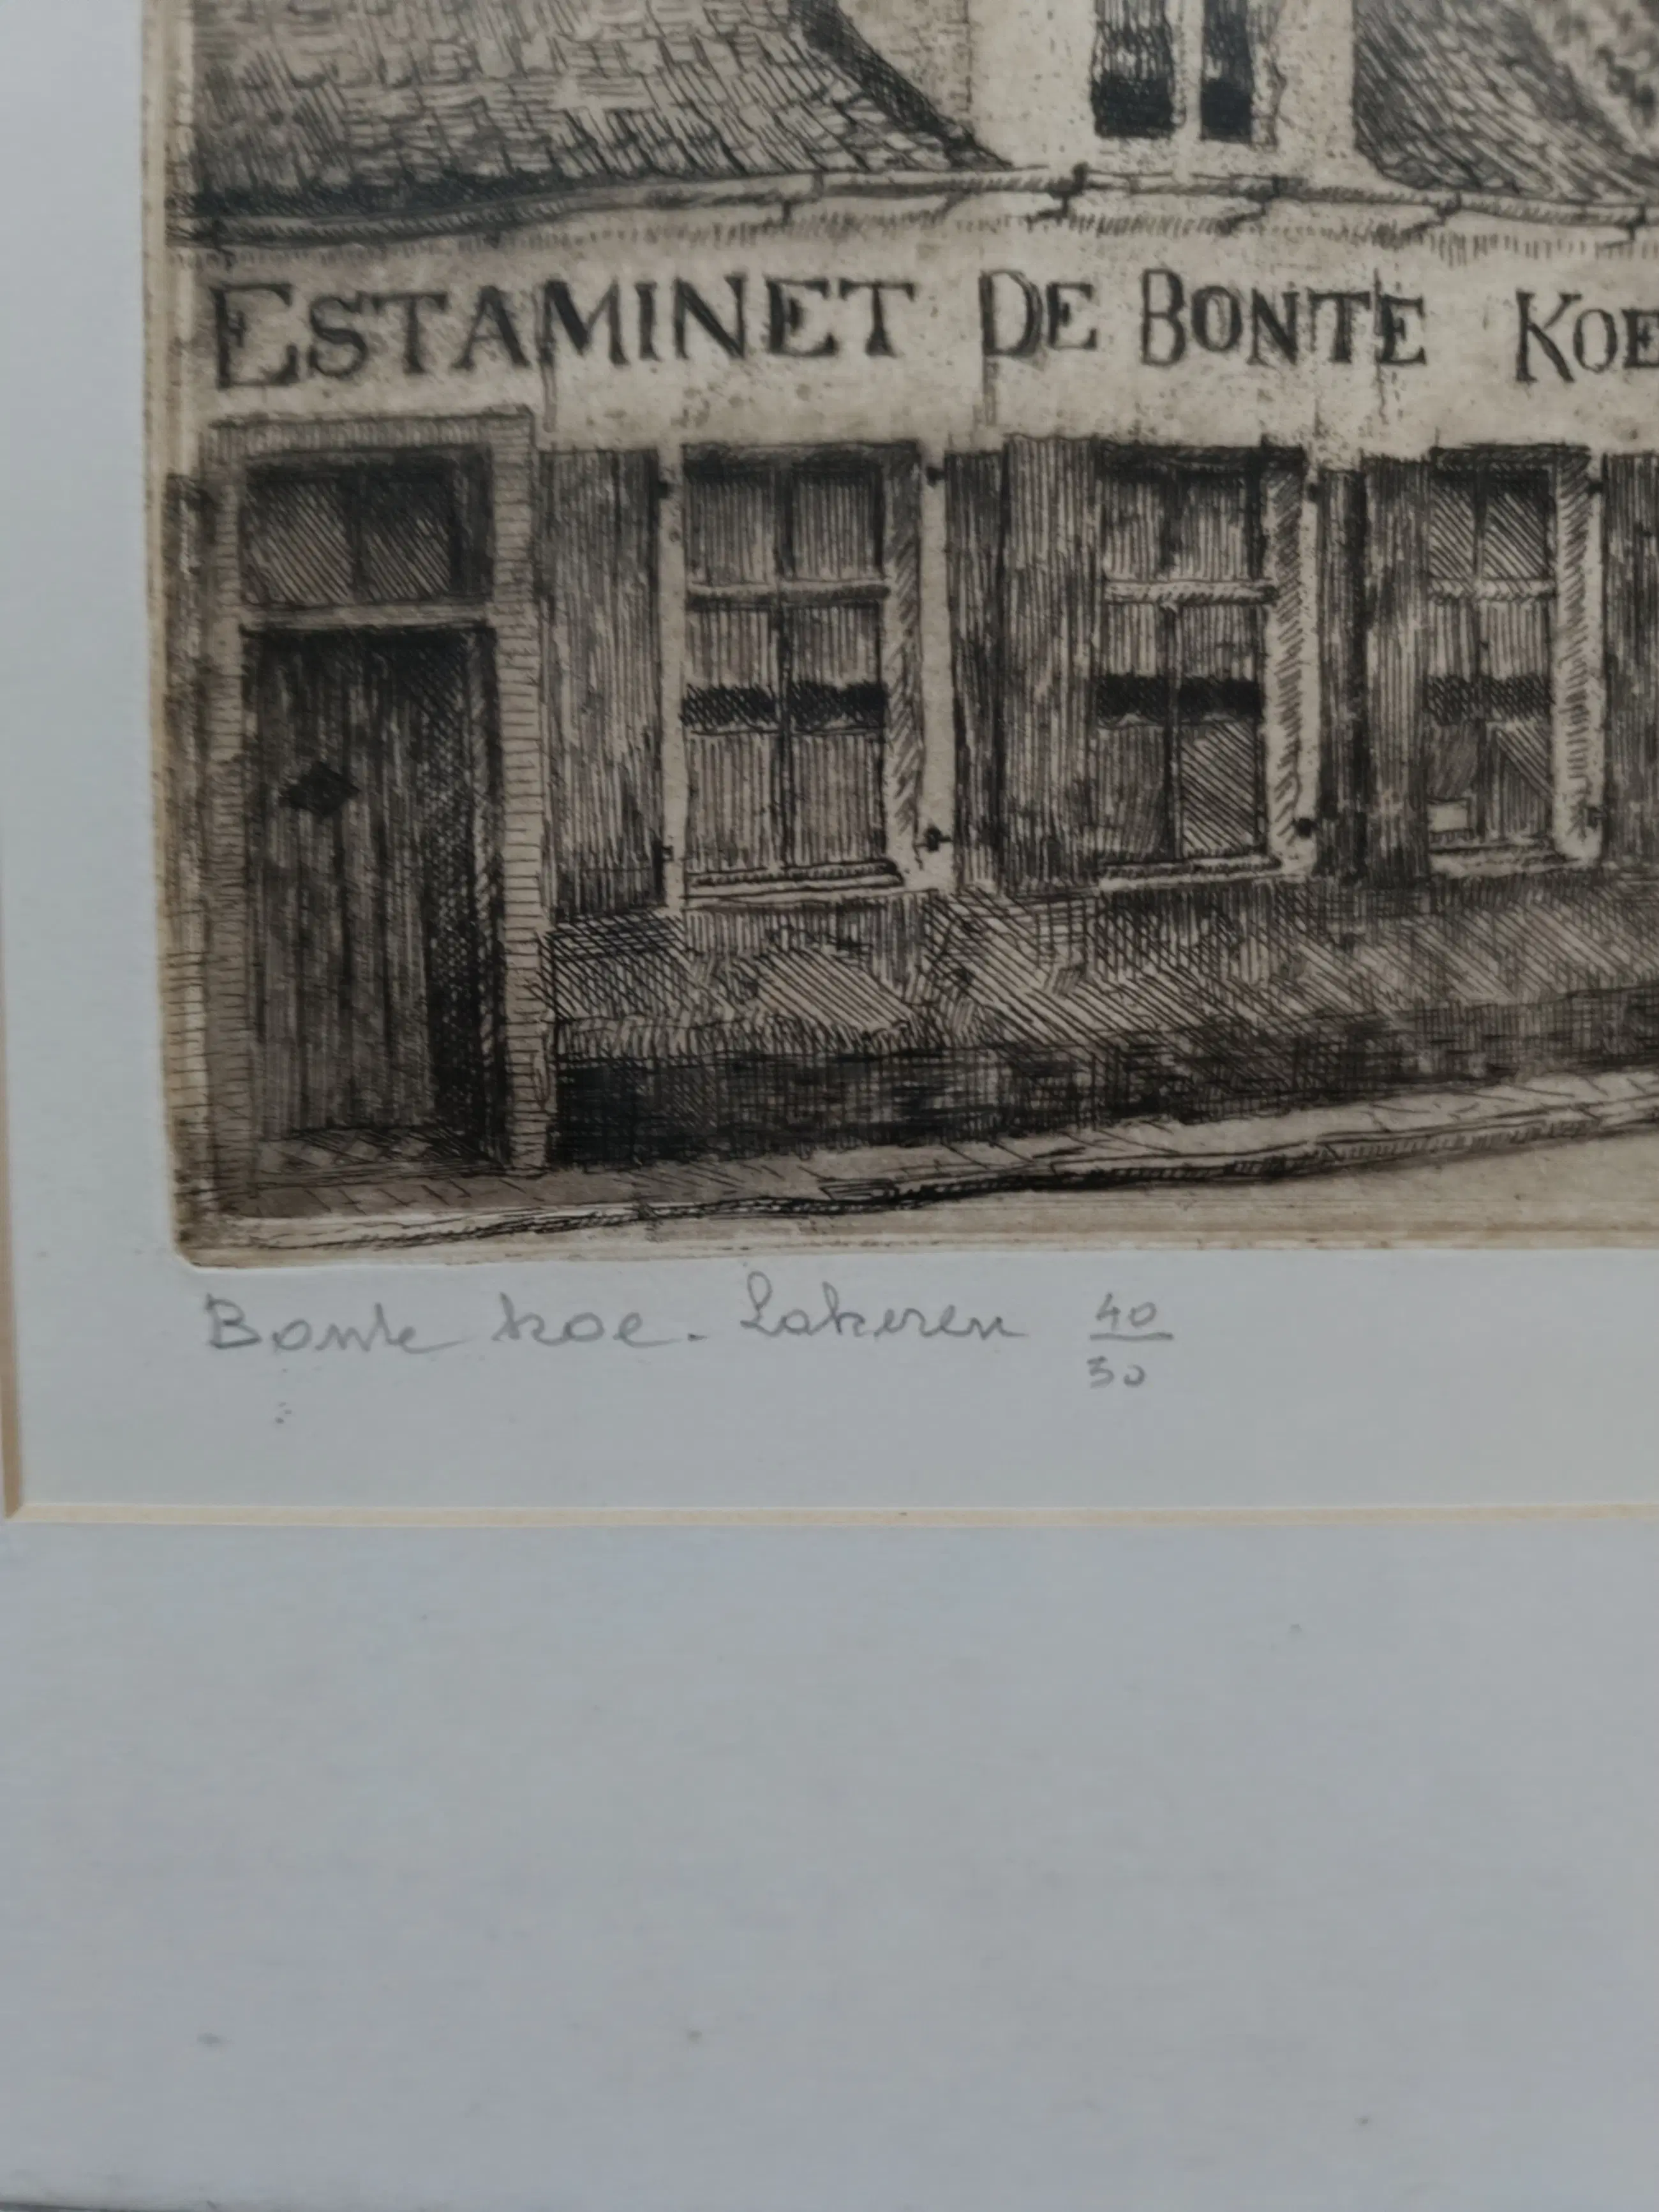 ESTAMINET DE BONTE KOE
Bonte koe. Lokeren 40/50